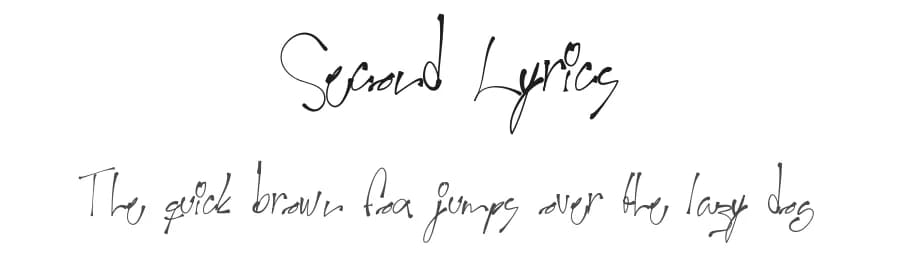 Second Lyrics
The quick brown fox jumps over the lazy dog